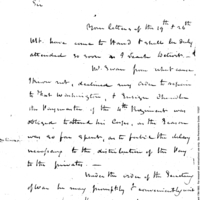 Sir
Your letters of the 19th & 26th
Ult. have come to Hand & shall be duly
attended to soon as I reach Detroit.
Mr. Swan from what cause
I know not, declined any order to
Fort Washington, &
the Paymaster of the 4th Regiment was
obliged to attend his Corps, as the Season
was so far spent, as to forbid the delay
necessary to the distribution of the Pay
to the privates —
Under the order of the Secretary
of War he may promptly & conveniently